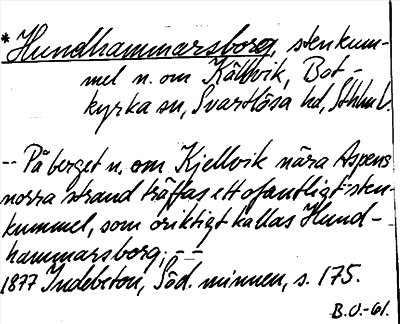 * Hundhammarsborg, stenkum-
mel n. om Källvik, Bot-
kyrka sn, Svartlösa hd, Sthlm l.
-- På berget n. om Kjellvik nära Aspens
norra strand träffas ett ofantligt sten-
kummel, som oriktigt kallas Hund-
hammarsborg; --
1877 Indebetou, Söd. minnen, s. 175.
B.O.-61.